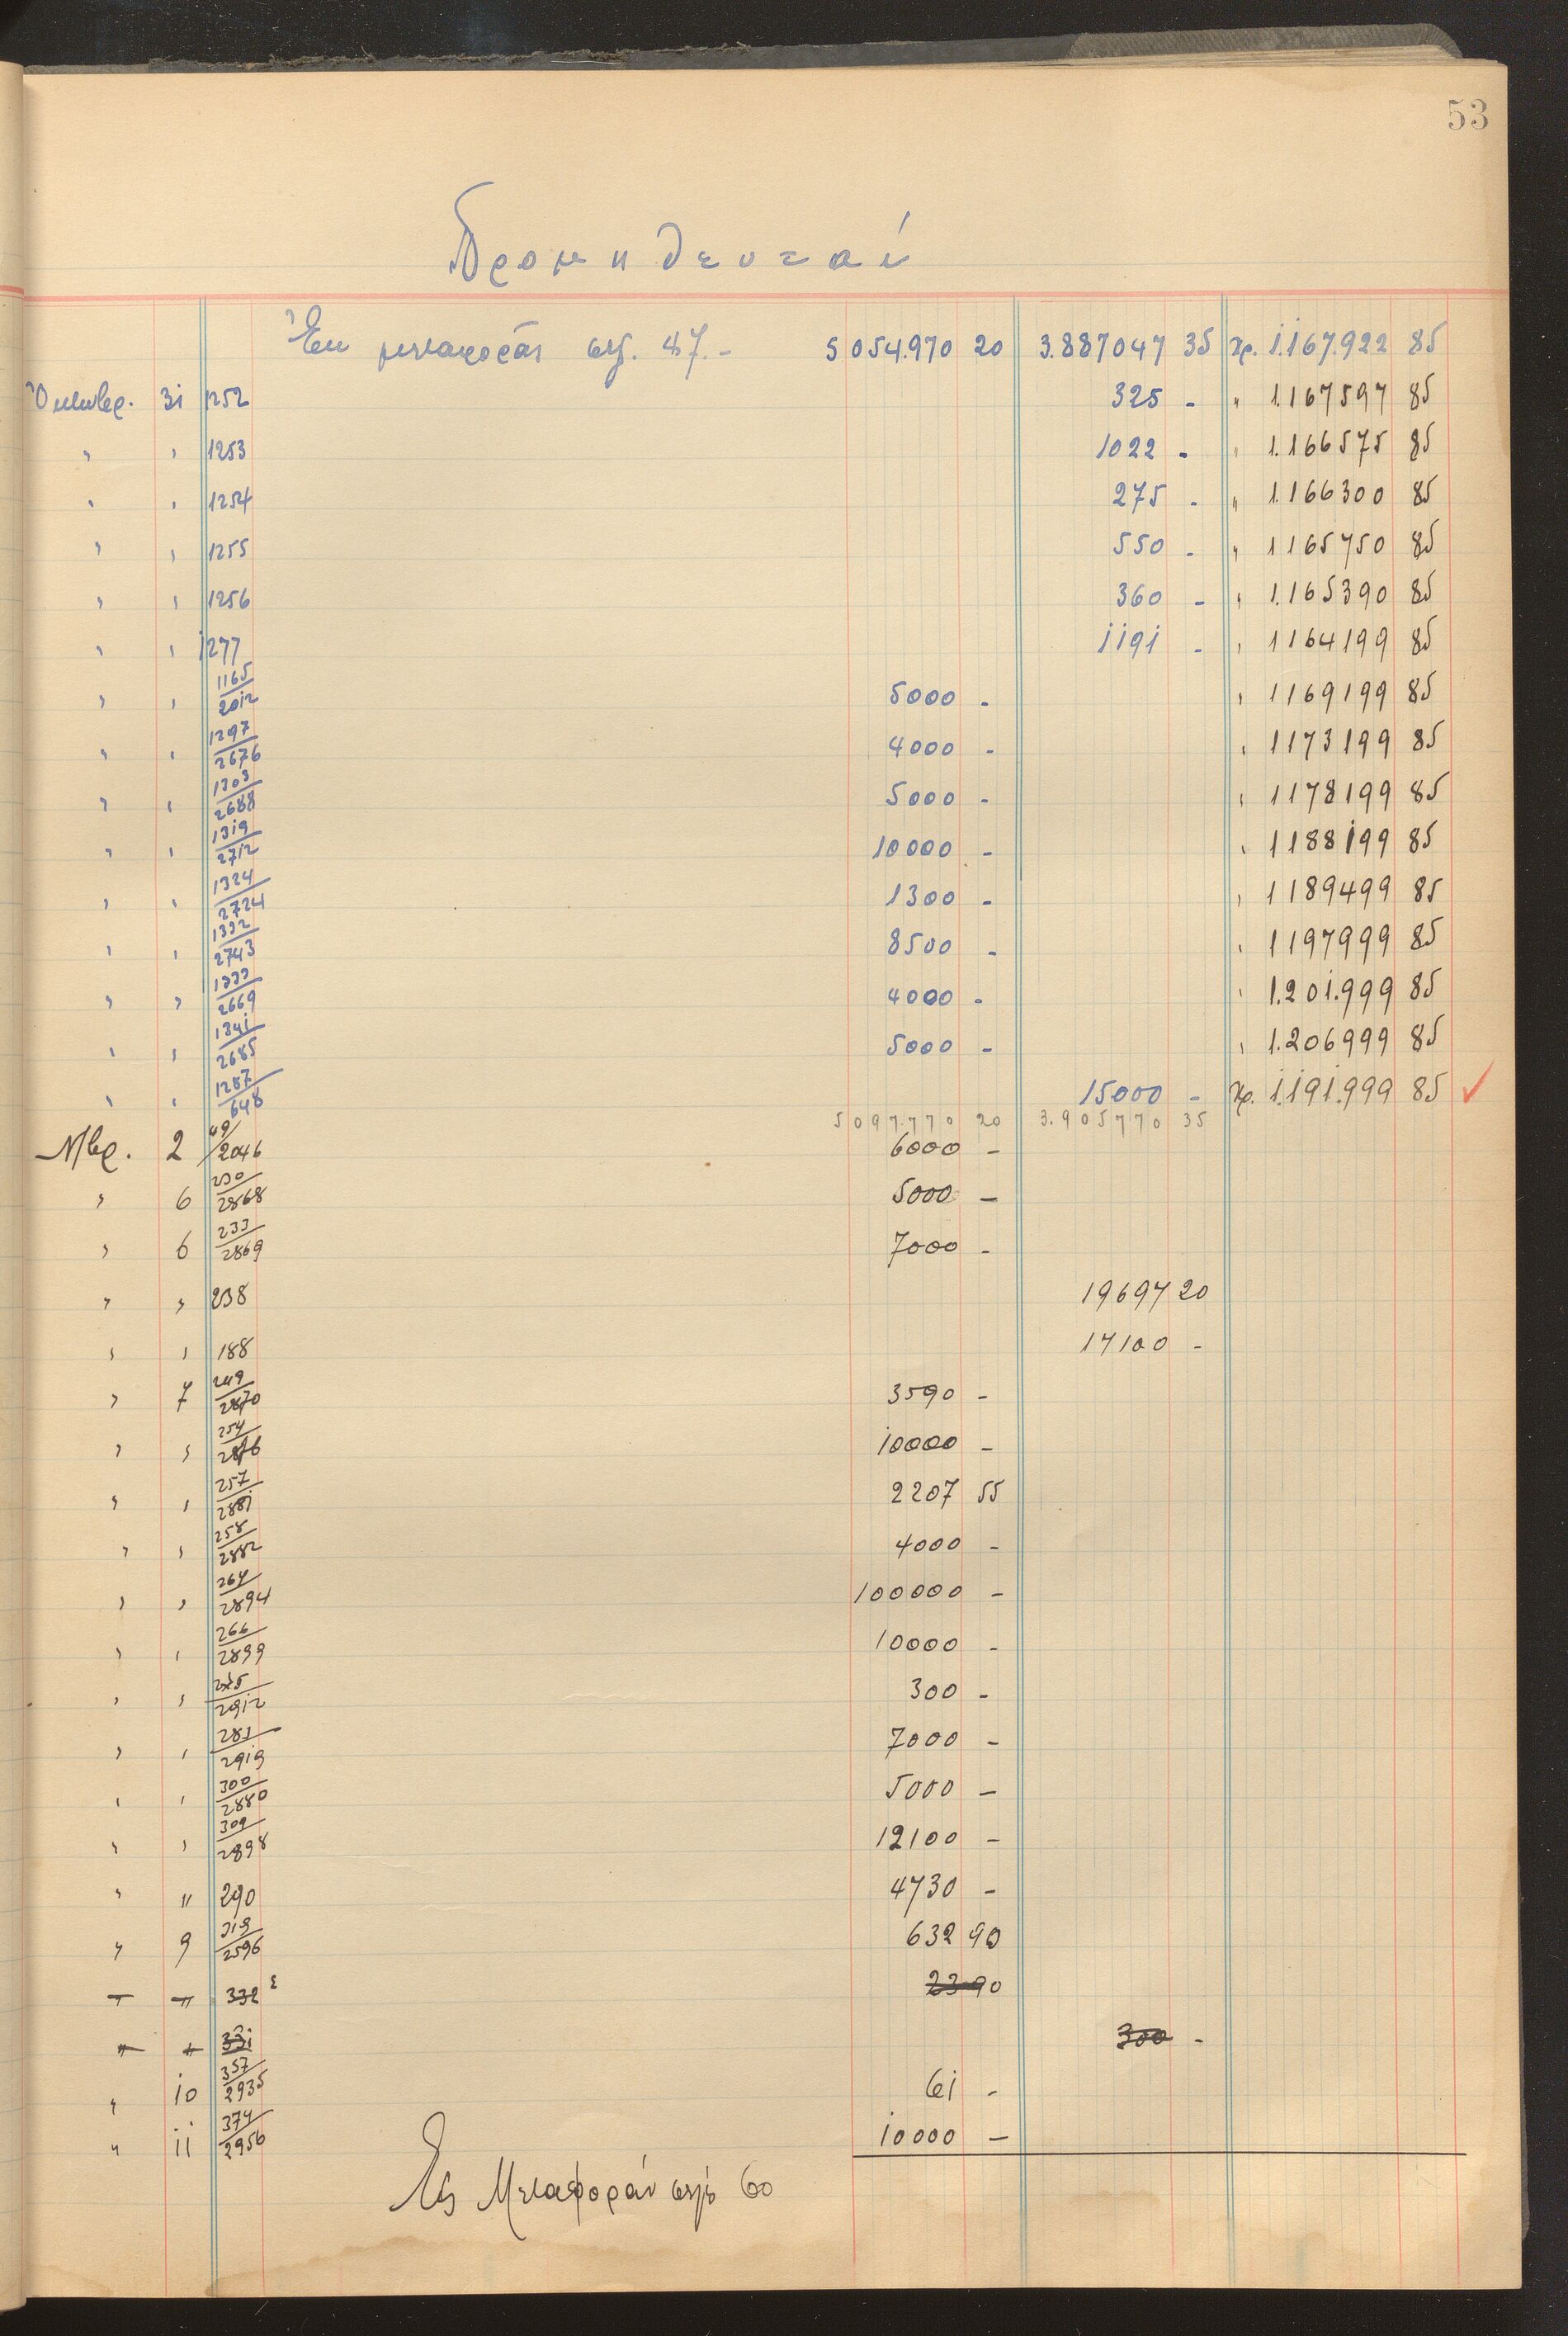 53
Προμηθευταί
Ἐκ μεταφορᾶς σελ. 47.- 5054.970 20 3.887047 35 Χρ. 1.167.922 85
Ὀκτωβρ. 31 1252 325 - " 1.167597 85
" " 1253 1022 - " 1.166575 85
" " 1254 275 - " 1.166300 85
" " 1255 550 - " 1165750 85
" " 1256 360 - " 1.165390 85
" " 1277 1191 - " 1164199 85
" " 1165/2012 5000 - " 1169199 85
" " 1297/2676 4000 - " 1173199 85
" " 1303/2688 5000 - " 1178199 85
" " 1319/2712 10000 - " 1188199 85
" " 1324/2724 1300 - " 1189499 85
" " 1332/2743 8500 - " 1197999 85
" " 1333/2669 4000 - " 1.201.999 85
" " 1341/2685 5000 - " 1.206999 85
" " 1287/648 15000 - Χρ. 1.191.999 85 ✓
5097.770 20 3.905770 35
Νβρ. 2 49/2046 6000 -
" 6 230/2868 5000 -
" 6 233/2869 7000 -
" " 238 19697 20
" " 188 17100 -
" 7 249/2870 3590 -
" " 254/2876 10000 -
" " 257/2881 2207 55
" " 258/2882 4000 -
" " 264/2894 100000 -
" " 266/2899 10000 -
" " 275/2912 300 -
" " 281/2919 7000 -
" " 300/2880 5000 -
" " 309/2898 12100 -
" " 290 4730 -
" 9 319/2596 632 90
" " 332 23 90
" " 331 300 -
" 10 357/2935 61 -
" 11 374/2956 10000 -
Εἰς Μεταφοράν σελ. 60